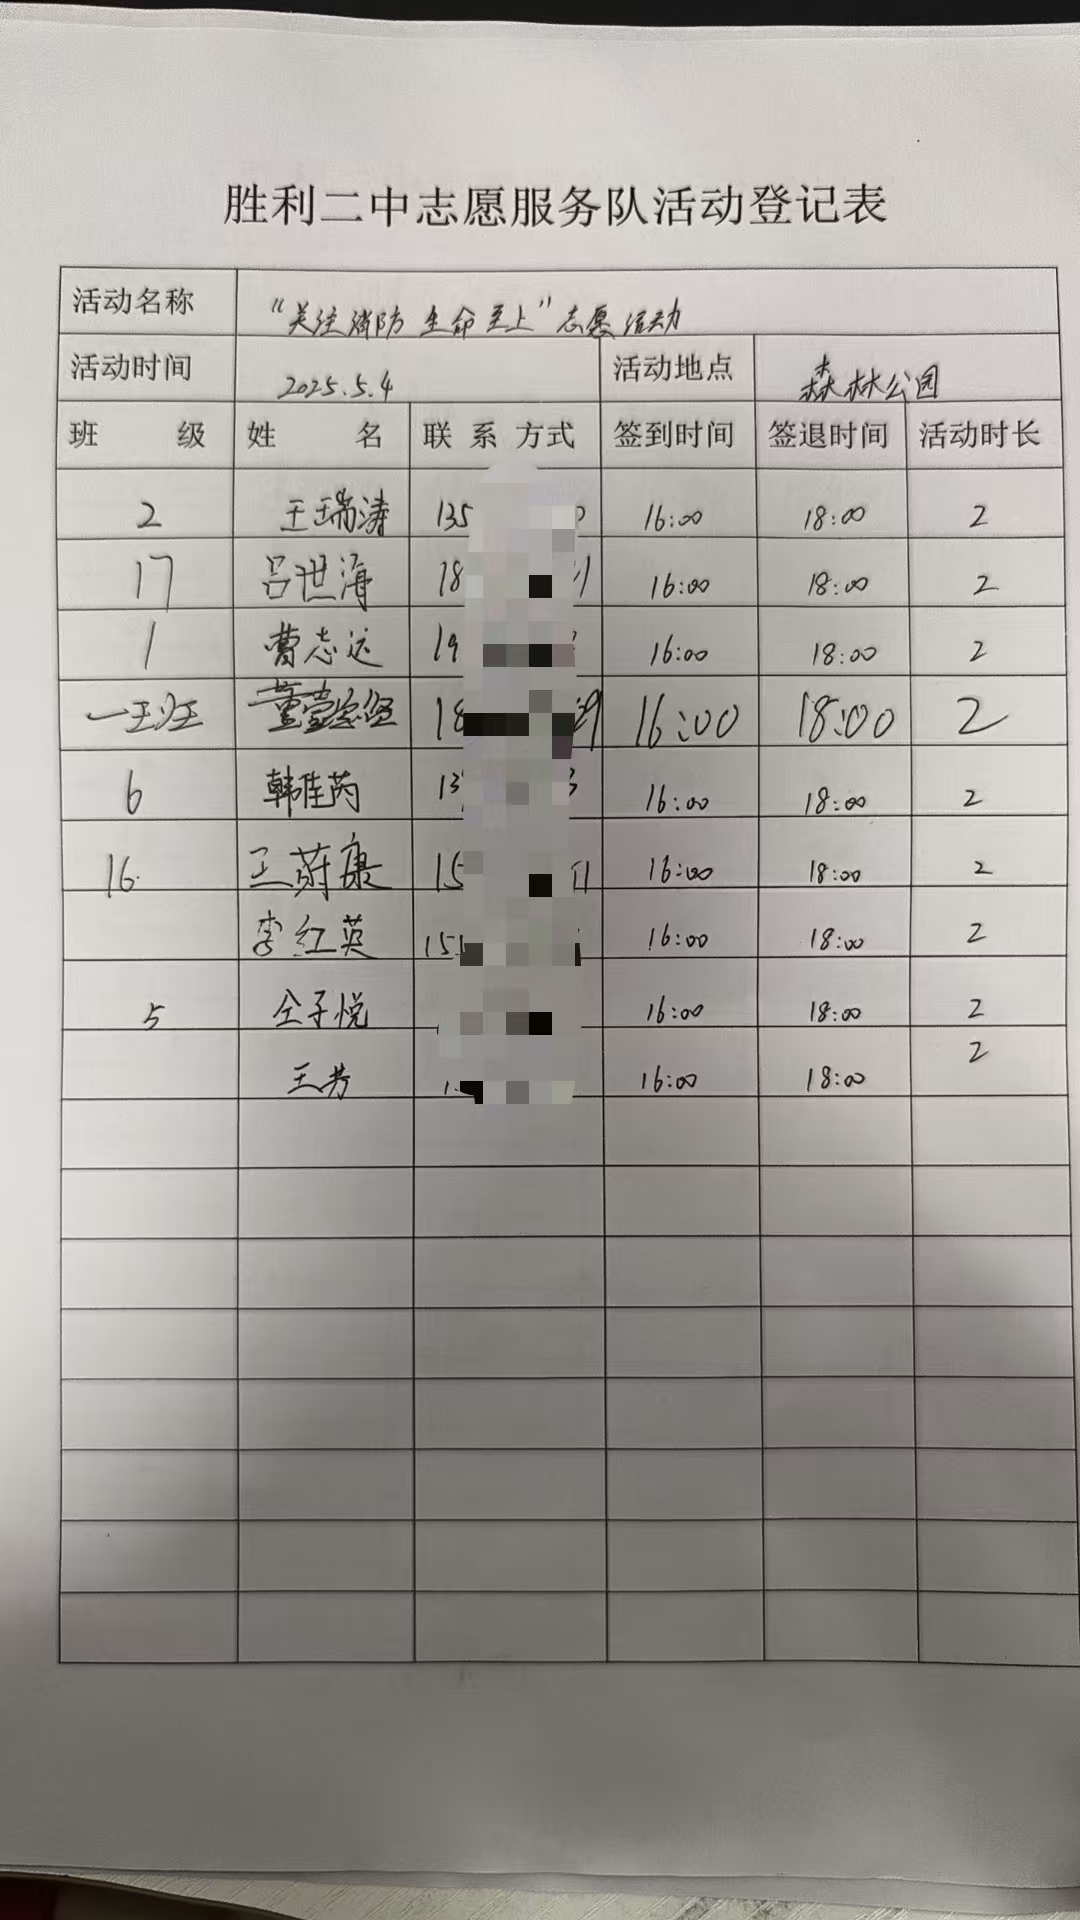 胜利二中志愿服务队活动登记表
活动名称 “关注消防 生命至上”志愿活动
活动时间 2025.5.4 活动地点 森林公园
班 级 姓 名 联系方式 签到时间 签退时间 活动时长
2 王瑞涛 135 16:00 18:00 2
17 吕世海 18 16:00 18:00 2
1 曹志远 19 16:00 18:00 2
一班 18 16:00 18:00 2
6 韩佳芮 13 16:00 18:00 2
16 王蔚康 15 16:00 18:00 2
李红英 15 16:00 18:00 2
5 仝子悦 16:00 18:00 2
王芳 16:00 18:00 2